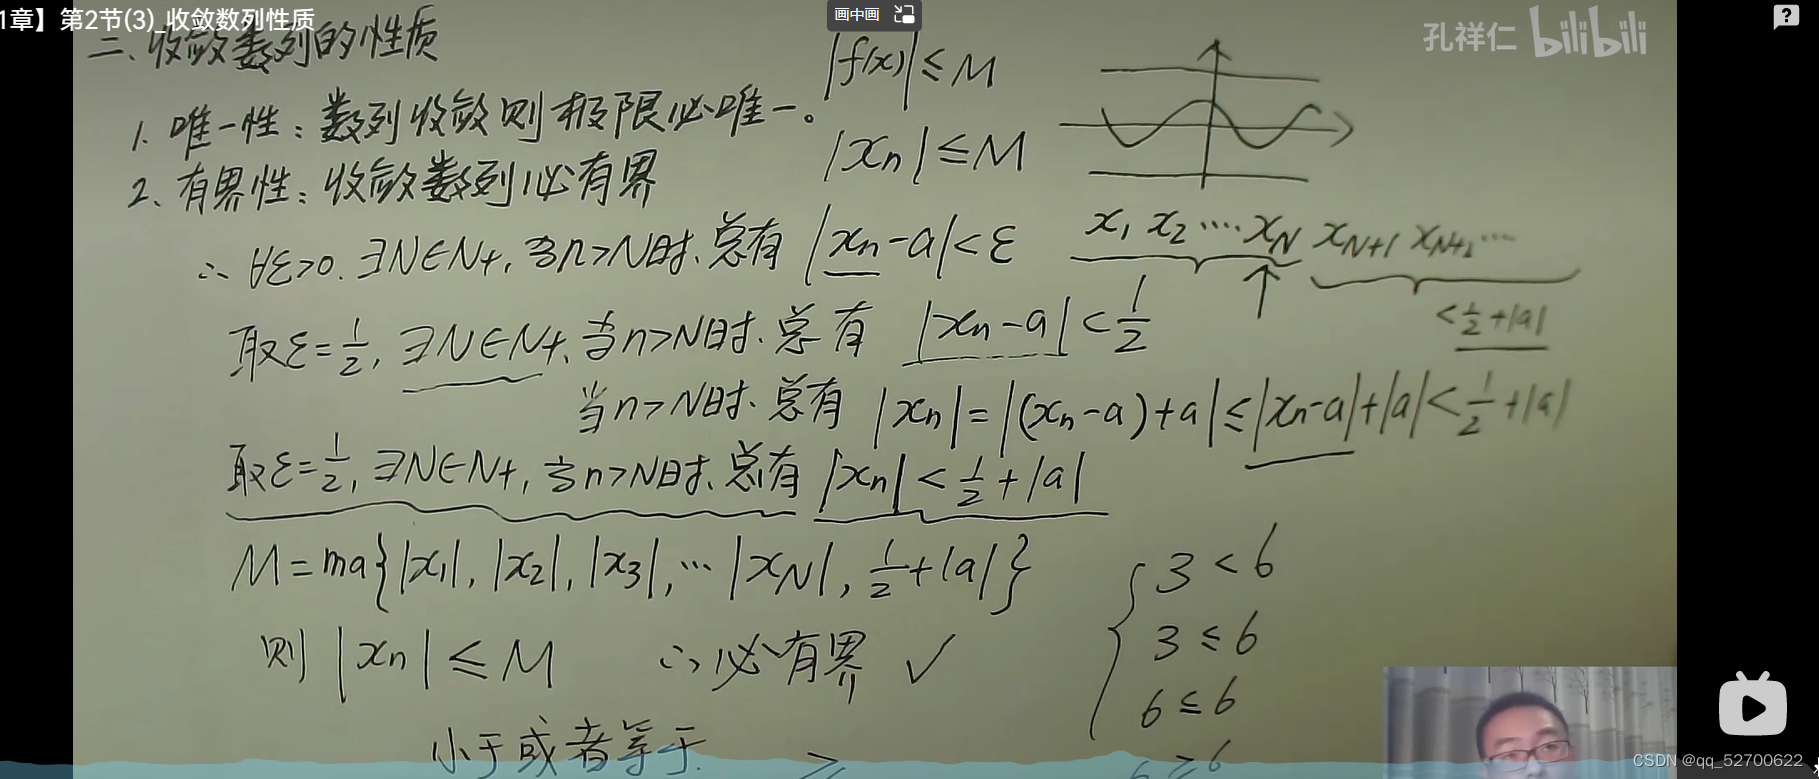 1章】第2节(3)_收敛数列性质
画中画
孔祥仁 bilibili
二、收敛数列的性质
|f(x)|≤M
1. 唯一性：数列收敛则极限必唯一。
|xn|≤M
2. 有界性：收敛数列必有界
∴ ∀ε>0. ∃N∈N+, 当n>N时. 总有 |xn-a|<ε
x1 x2 ···· xN xN+1 xN+2 ···
取ε=1/2, ∃N∈N+, 当n>N时. 总有 |xn-a|<1/2
<1/2+|a|
当n>N时. 总有 |xn|=|(xn-a)+a|≤|xn-a|+|a|<1/2+|a|
取ε=1/2, ∃N∈N+, 当n>N时. 总有 |xn|<1/2+|a|
M=ma{|x1|, |x2|, |x3|, ··· |xN|, 1/2+|a|}
3<6
则 |xn|≤M ∴必有界 ✓
3≤6
6≤6
小于或者等于
≥
6≥6
CSDN @qq_52700622